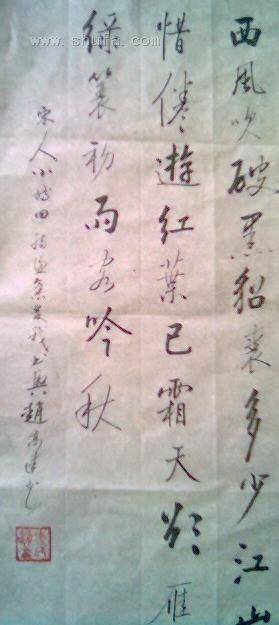 西風吹破黑貂裘多少江山
惜倦遊紅葉已霜天欲雁
綠簑初雨客吟秋
宋人小詩
www.shufa.com